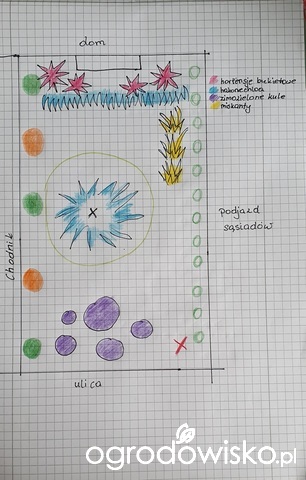 dom
hortensje bukietowe
hakonechloa
zimozielone kule
miskanty
Podjazd
sąsiadów
Chodnik
X
X
ulica
ogrodowisko.pl